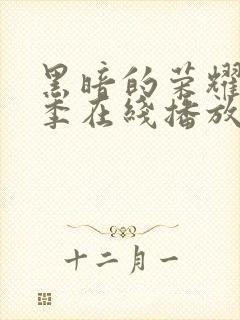 黑暗的荣耀
季在线播放
十二月一